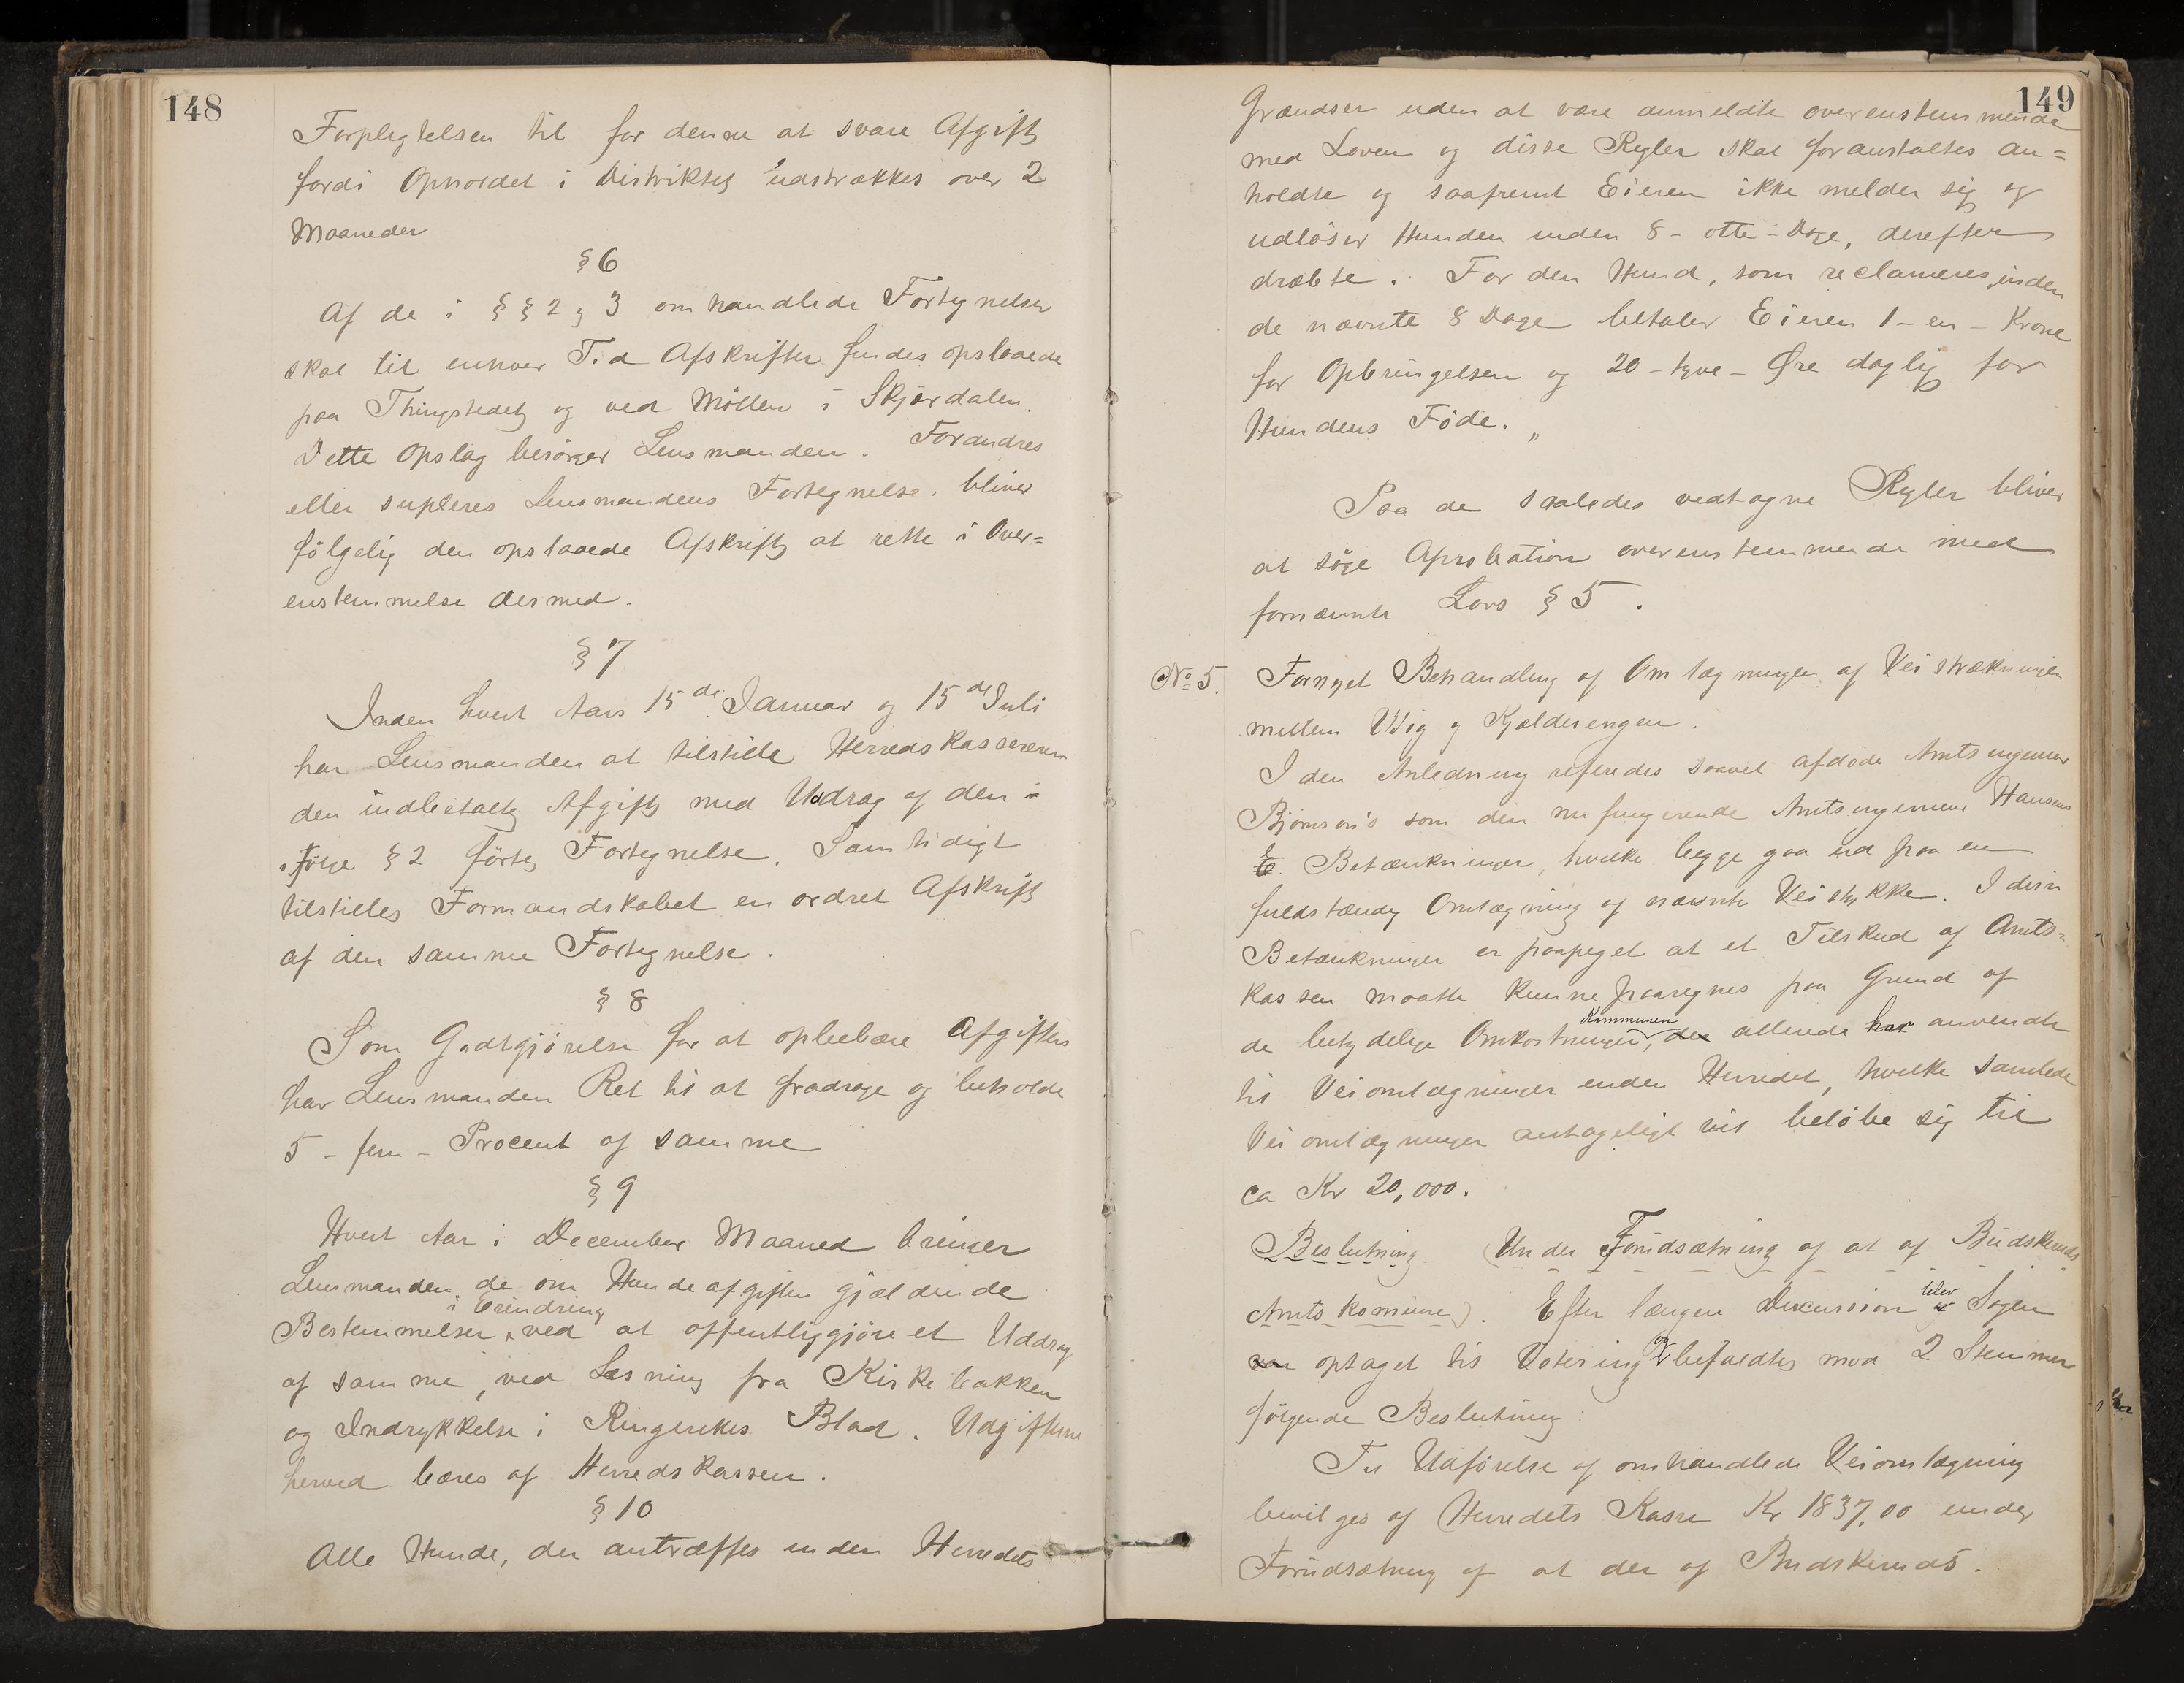 148
Forplegtelsen til for denne at svare Afgift
fordi Opholdet i Distriktet udstrækkes over 2
Maaneder
§ 6
Af de i §§ 2 og 3 omhandlede Fortegnelser
skal til enhver Tid Afskrifter findes opslaaede
paa Thingstedet og ved Møllen i Skjærdalen.
Dette Opslag besørger Lensmanden. Forandres
eller supleres Lensmandens Fortegnelse. bliver
følgelig den opslaaede Afskrift at rette i Over=
enstemmelse dermed.
§ 7
Inden hvert Aars 15de Januar og 15de Juli
har Lensmanden at tilstille Herredskassereren
den indbetalte Afgift med Uddrag af den i=
følge § 2 førte Fortegnelse. Samtidigt
tilstilles Formandskabet en ordret Afskrift
af den samme Fortegnelse.
§ 8
Som Godtgjørelse for at opbebære Afgiften
har Lensmanden Ret til at fradrage og beholde
5 - fem - Procent af samme
§ 9
Hvert Aar i December Maaned bringer
Lensmanden de om Hundeafgiften gjældende
Bestemmelser i Erindring ved at offentliggjøre et Uddrag
af samme, ved Læsning fra Kirkebakken
og Indrykkelse i Ringerikes Blad. Udgifterne
herved bæres af Herredskassen.
§ 10
Alle Hunde, der antræffes inden Herredets
149
Grændser uden at være anmeldte overensstemmende
med Loven og disse Regler skal foranstaltes an=
holdte og saafremt Eieren ikke melder sig og
udløser Hunden inden 8 - otte - Dage, derefter
dræbte. For den Hund, som reclameres inden
de nævnte 8 Dage betaler Eieren 1 - en - Krone
for Opbringelsen og 20 - tyve - Øre daglig for
Hundens Føde. „
Paa de saaledes vedtagne Regler bliver
at søge Aprobation overensstemmende med
fornævnte Lovs § 5.
No 5. Fornyet Behandling af Omlægningen af Veistrækningen
mellem Wig og Kjælderengen.
I den Anledning refererdes saavel afdøde Amtsingeniør
Bjørnson's som den nu fungerende Amtsingeniør Hansens
Betænkninger, hvilke begge gaa ud paa en
fuldstændig Omlægning af nævnte Veistykke. I disse
Betænkninger er paapeget at et Tilskud af Amts=
kassen maatte kunne paaregnes paa Grund af
de betydelige Omkostninger, Kommunen allerede har anvendte
til Veiomlægninger inden Herredet, hvilke samlede
Veiomlægninger antageligt vil beløbe sig til
ca Kr 20,000.
Beslutning (Under Forudsætning af at af Buskeruds
Amtskomune). Efter længere Discussion blev Sagen
optaget til Votering og befaldtes mod 2 Stemmer
følgende Beslutning:
Til Udførelse af omhandlede Veiomlægning
bevilges af Herredets Kasse Kr 1837,00 under
Forudsætning af at der af Buskeruds.